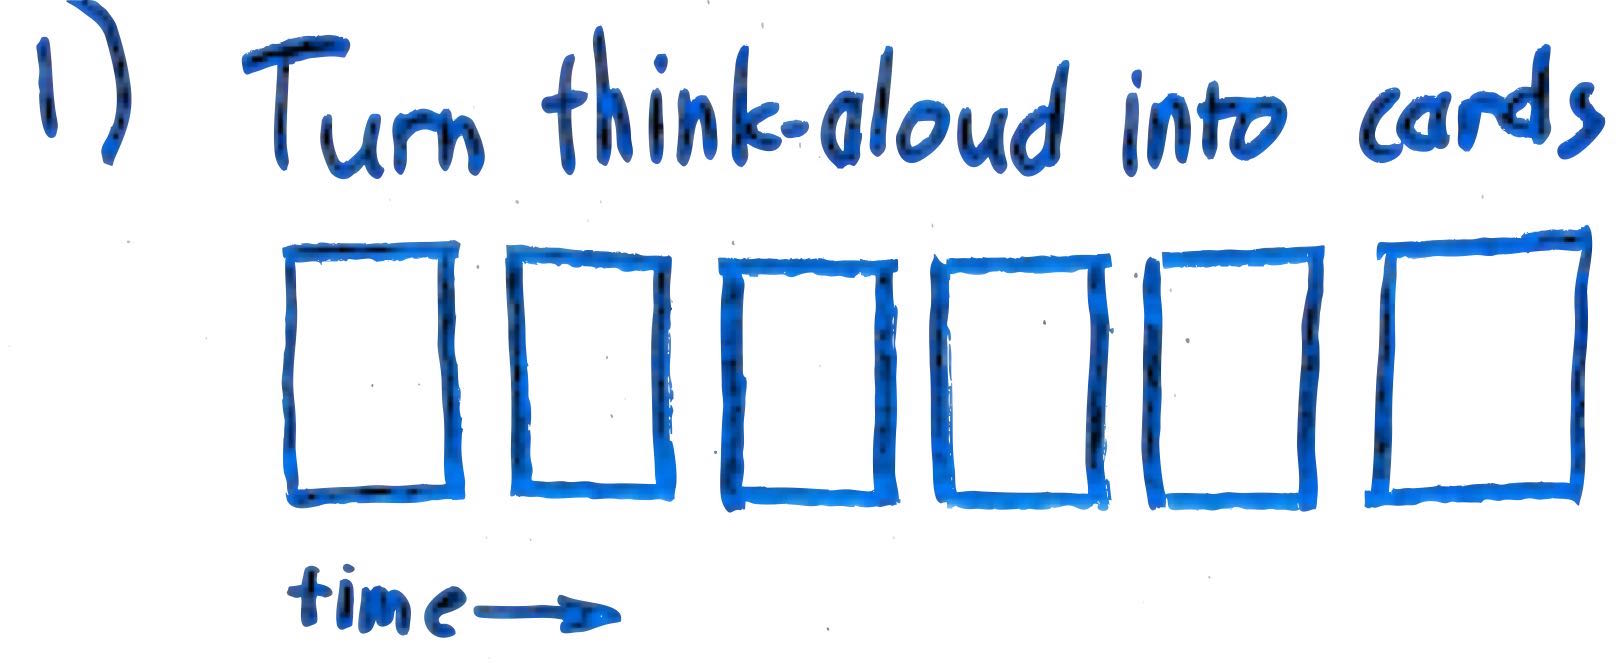 1) Turn think-aloud into cards
time →